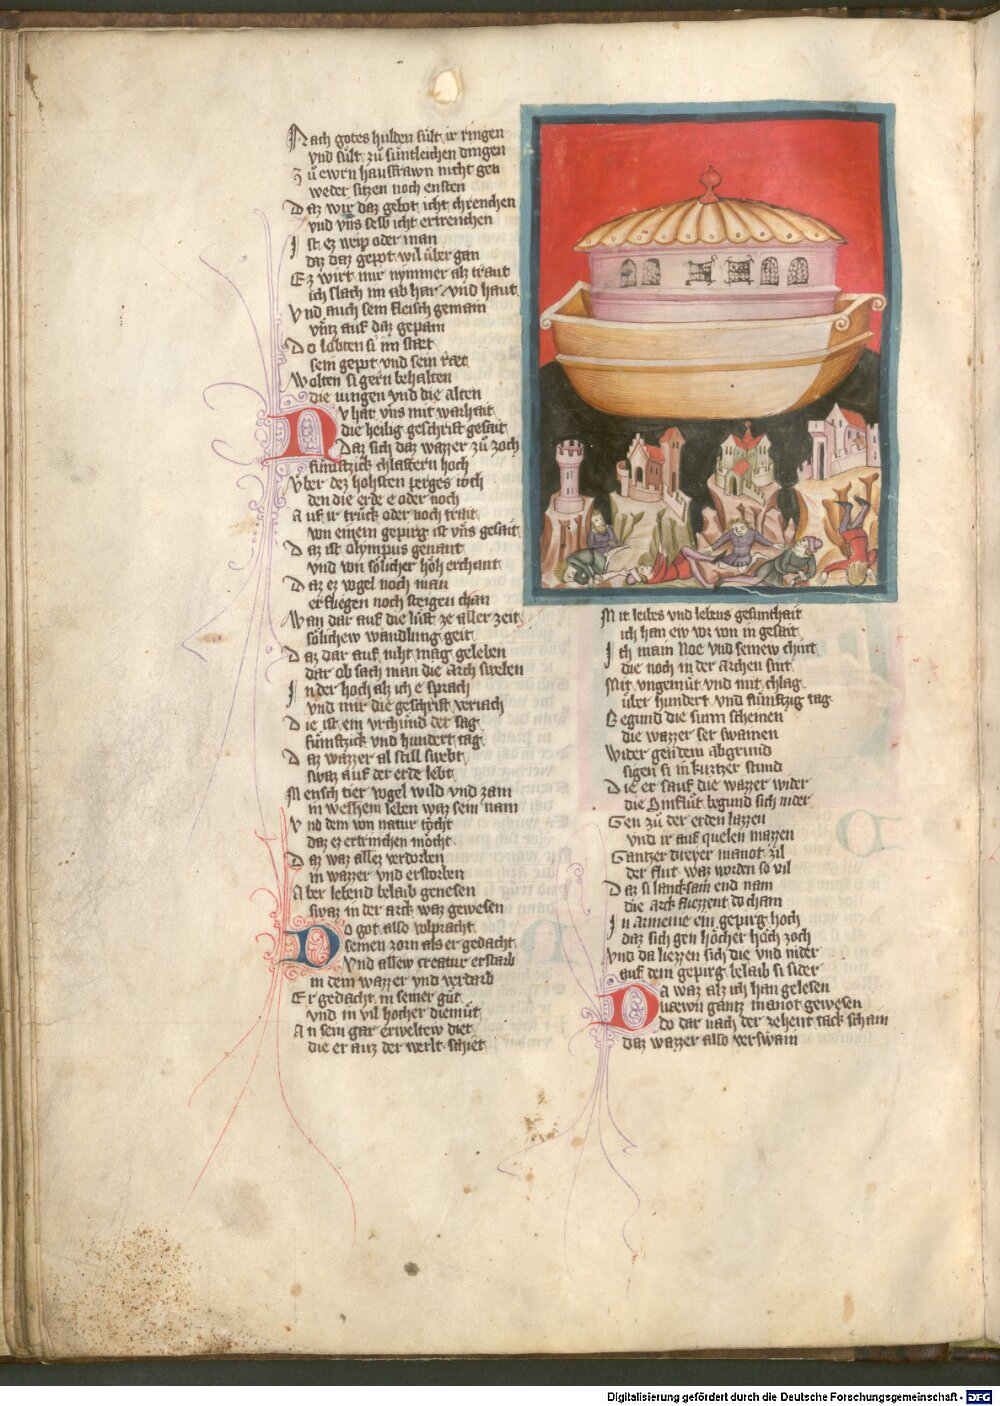 Nach gotes hulden sült ir ringen
vnd sült zů süntleichen dingen
Zů ewrn hausfrawn nicht gen
weder sitzen noch ensten
Daz wir daz gebot icht chrenchen
vnd vns selb icht ertrenchen
Ist ez weip oder man
daz daz gepot wil über gan
Ez wirt mir nymmer alz traut
ich slach im ab har vnd haut
Vnd auch sein fleisch gemain
vntz auf daz gepain
Do lobten si im stæt
sein gepot vnd sein ræt
Wolten si gern behalten
die iungen vnd die alten
Nv hat vns mit warhait
die heilig geschrift gesait
Daz sich daz wazzer zů zoch
fümftzick chlaftern hoch
Vber dez höhsten perges ioch
den die erde e oder noch
Auf ir truck oder noch trait
von einem gepirg ist vns gesait
Daz ist olympus genant
vnd von sölicher höh erchant
Daz ez vogel noch man
erfliegen noch steigen chan
Wan dar auf die lüft ze aller zeit
sölichew wandlung geit
Daz dar auf niht mag geleben
dar ob sach man die arch sweben
In der hoch alz ich e sprach
vnd mir die geschrift veriach
Die ist ein vrchünd der sag
fümftzick vnd hundert tag
Daz wazzer al still swebt
swaz auf der erde lebt
Mensch tier vogel wild vnd zam
in welhem leben waz sein nam
Vnd dem von natur töcht
daz ez ertrinchen möcht
Daz waz allez verdorben
in wazzer vnd erstorben
Aber lebend belaib genesen
swaz in der arck waz gewesen
Do got also volpracht
seinen zorn als er gedacht
Vnd allew creatur erstarb
in dem wazzer vnd verdarb
Er gedacht in seiner güt
vnd in vil hocher diemüt
An sein gar erweltew diet
die er auz der werlt schiet
Mit leibes vnd lebens gesunthait
ich han ew vor von in gesait
Ich main Noe vnd seinew chint
die noch in der archen sint
Mit vngemüt vnd mit chlag
über hundert vnd fünftzig tag
Begund die sunn scheinen
die wazzer ser swainen
Wider gen dem abgrund
sigen si in kurtzer stund
Die er sauf die wazzer wider
die Sinflüt begund sich nider
Gen zů der erden lazzen
vnd ir auf quelen mazzen
Gantzer dreyer manot zil
der flut waz worden so vil
Daz si lancksaim end nam
die arck fliezzent do cham
In Armenie ein gepirg hoch
daz sich gen höcher höch zoch
Vnd da liezzen sich die vnd nider
auf dem gepirg belaib si sider
Da waz alz ich han gelesen
Niewn gantz manot gewesen
do dar nach der zehent tack scham
daz wazzer also verswain
Digitalisierung gefördert durch die Deutsche Forschungsgemeinschaft - DFG